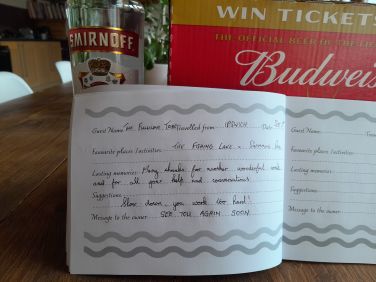 WIN TICKETS
THE OFFICIAL BEER OF THE
SMIRNOFF
Budweis
Guest Name The Travelled from IPSWICH Date
Favourite places/activities THE FISHING LAKE +
Lasting memories Many thanks for another wonderful
and for all your help and conversations
Suggestions
Slow down, you work too hard!
Message to the owner SEE YOU AGAIN SOON
Guest Name
Favourite places
Lasting memories
Suggestions
Message to the owner